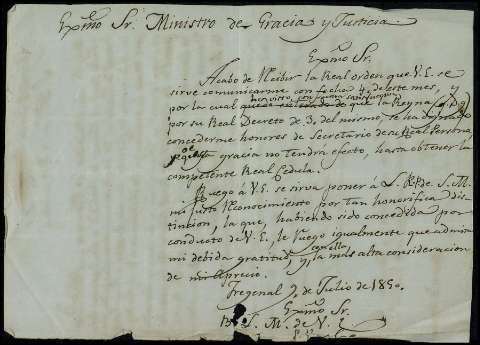 Exmo Sr. Ministro de Gracia y Justicia.
Exmo Sr.
Acabo de recibir la Real orden que V.E. se
sirve comunicarme con fecha 4 de este mes, y
he visto, con suma
por la cual que la Reyna (q. D. g.)
por su Real Decreto de 3, del mismo, se ha dignado
concederme honores de Secretario de su Real Persona,
gracia no tendrá efecto, hasta obtener la
competente Real Cedula.
Ruego á V.E. se sirva poner á L. R. P. de S. M.
mi justo reconocimiento por tan honorifica dis-
tincion, la que, habiendo sido concedida por
conducto de V.E., le ruego igualmente que admita
con ella,
mi debida gratitud, y, la mas alta consideracion
de mi aprecio.
Fregenal 9, de Julio de 1850.
Exmo Sr.
B. L. M. de V. E.